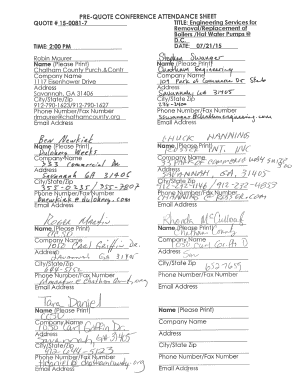 PRE-QUOTE CONFERENCE ATTENDANCE SHEET
QUOTE # 15-0081-7
TITLE: Engineering Services for
Removal/Replacement of
Boilers /Hot Water Pumps @
D.C.
TIME: 2:00 PM
DATE: 07/21/15
Robin Maurer
Name (Please Print)
Chatham County Purch & Contr
Company Name
1117 Eisenhower Drive
Address
Savannah, GA 31406
City/State/Zip
912-790-1623/912-790-1627
Phone Number/Fax Number
rmaurer@chathamcounty.org
Email Address
Stephen Swanger
Name (Please Print)
Chatham Engineering
Company Name
Address
Savannah, GA 31405
City/State/Zip
Phone Number/Fax Number
Email Address
Ben
Name (Please Print)
Dulohery Weeks
Company Name
Commercial Dr
Address
Savannah GA 31406
City/State/Zip
Phone Number/Fax Number
Email Address
CHUCK MANNING
Name (Please Print)
Company Name
Address
SAVANNAH, GA, 31405
City/State/Zip
Phone Number/Fax Number
Email Address
Roger Martin
Name (Please Print)
CCSO
Company Name
1050 Carl Griffin Dr.
Address
Savannah, GA 31405
City/State/Zip
Phone Number/Fax Number
Email Address
Rhonda McCullough
Name (Please Print)
Chatham County
Company Name
1050 Carl Griffin D
Address
Sav
City/State Zip
652-7655
Phone Number/Fax Number
Email Address
Tara Daniel
Name (Please Print)
CCSO
Company Name
1050 Carl Griffin Dr.
Address
Savannah, GA 31405
City/State/Zip
Phone Number/Fax Number
Email Address
Name (Please Print)
Company Name
Address
City/State/Zip
Phone Number/Fax Number
Email Address